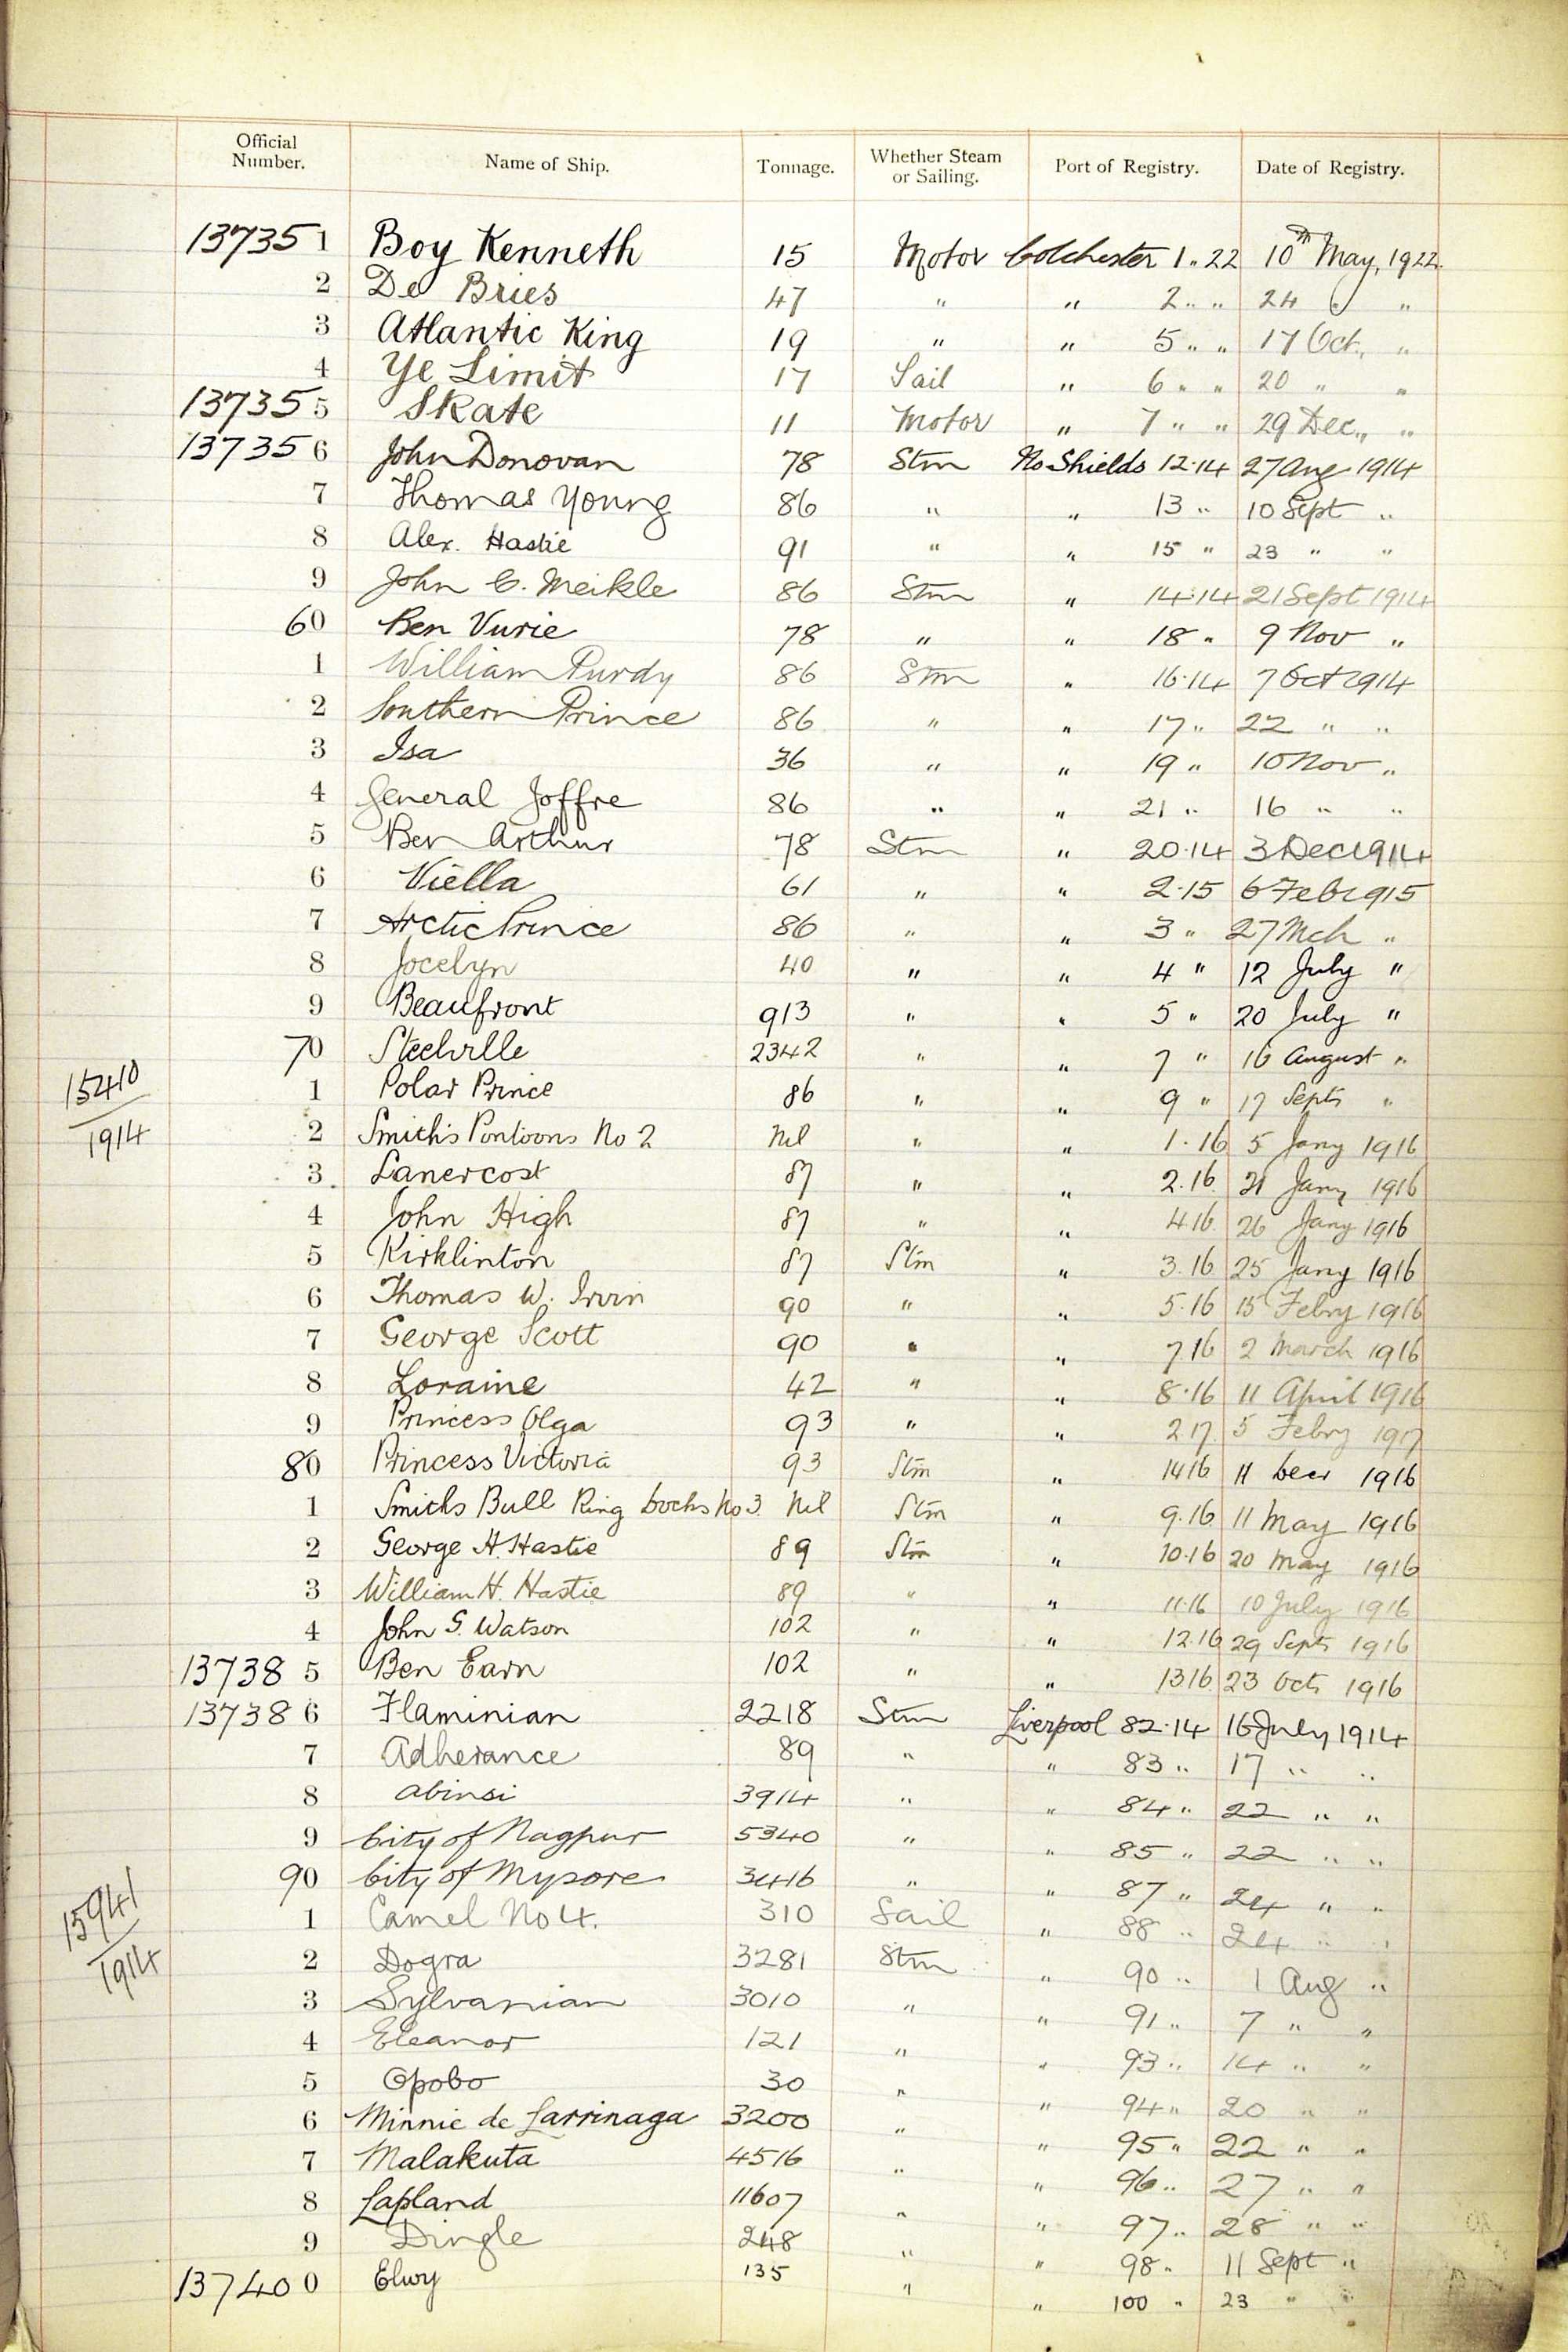 Official Number. Name of Ship. Tonnage. Whether Steam or Sailing. Port of Registry. Date of Registry.
137351 Boy Kenneth 15 Motor Colchester 1 " 22 10th May, 1922.
2 De Bries 47 " " 2 " " 24 " "
3 Atlantic King 19 " " 5 " " 17 Oct., "
4 Ye Limit 17 Sail " 6 " " 20 " "
137355 Skate 11 Motor " 7 " " 29 Dec., "
137356 John Donovan 78 Stm No Shields 12.14 27 Aug 1914
7 Thomas Young 86 " " 13 " 10 Sept "
8 Alex. Hastie 91 " " 15 " 23 " "
9 John C. Meikle 86 Stm " 14.14 21 Sept 1914
60 Ben Vurie 78 " " 18 " 9 Nov "
1 William Purdy 86 Stm " 16.14 7 Oct 1914
2 Southern Prince 86 " " 17 " 22 " "
3 Isa 36 " " 19 " 10 Nov "
4 General Joffre 86 " " 21 " 16 " "
5 Ben Arthur 78 Stm " 20.14 3 Dec 1914
6 Viella 61 " " 2.15 6 Feb 1915
7 Arctic Prince 86 " " 3 " 27 Mch "
8 Jocelyn 40 " " 4 " 12 July "
9 Beaufront 913 " " 5 " 20 July "
70 Steelville 2342 " " 7 " 16 August "
15410/1914 1 Polar Prince 86 " " 9 " 17 Sept "
2 Smith's Pontoons No 2 Nil " " 1.16 5 Jany 1916
3 Lanercost 87 " " 2.16 21 Jany 1916
4 John High 87 " " 4.16 26 Jany 1916
5 Kirklinton 87 Stm " 3.16 25 Jany 1916
6 Thomas W. Irvin 90 " " 5.16 15 Febry 1916
7 George Scott 90 " " 7.16 2 March 1916
8 Loraine 42 " " 8.16 11 April 1916
9 Princess Olga 93 " " 2.17 5 Febry 1917
80 Princess Victoria 93 Stm " 14.16 11 Decr 1916
1 Smiths Bull Ring Docks No 3. Nil Stm " 9.16 11 May 1916
2 George H. Hastie 89 Stm " 10.16 20 May 1916
3 William H. Hastie 89 " " 11.16 10 July 1916
4 John G. Watson 102 " " 12.16 29 Sept 1916
137385 Ben Earn 102 " " 13.16 23 Oct 1916
137386 Flaminian 2218 Stm Liverpool 82.14 16 July 1914
7 Adherance 89 " " 83 " 17 " "
8 Abinsi 3914 " " 84 " 22 " "
9 City of Nagpur 5340 " " 85 " 22 " "
90 City of Mysore 3416 " " 87 " 24 " "
15941/1914 1 Camel No 4. 310 Sail " 88 " 24 " "
2 Dogra 3281 Stm " 90 " 1 Aug "
3 Sylvanian 3010 " " 91 " 7 " "
4 Eleanor 121 " " 93 " 14 " "
5 Opobo 30 " " 94 " 20 " "
6 Minnie de Larrinaga 3200 " " 95 " 22 " "
7 Malakuta 4516 " " 96 " 27 " "
8 Lapland 11607 " " 97 " 28 " "
9 Dingle 248 " " 98 " 11 Sept "
137400 Elwy 135 " " 100 " 23 "